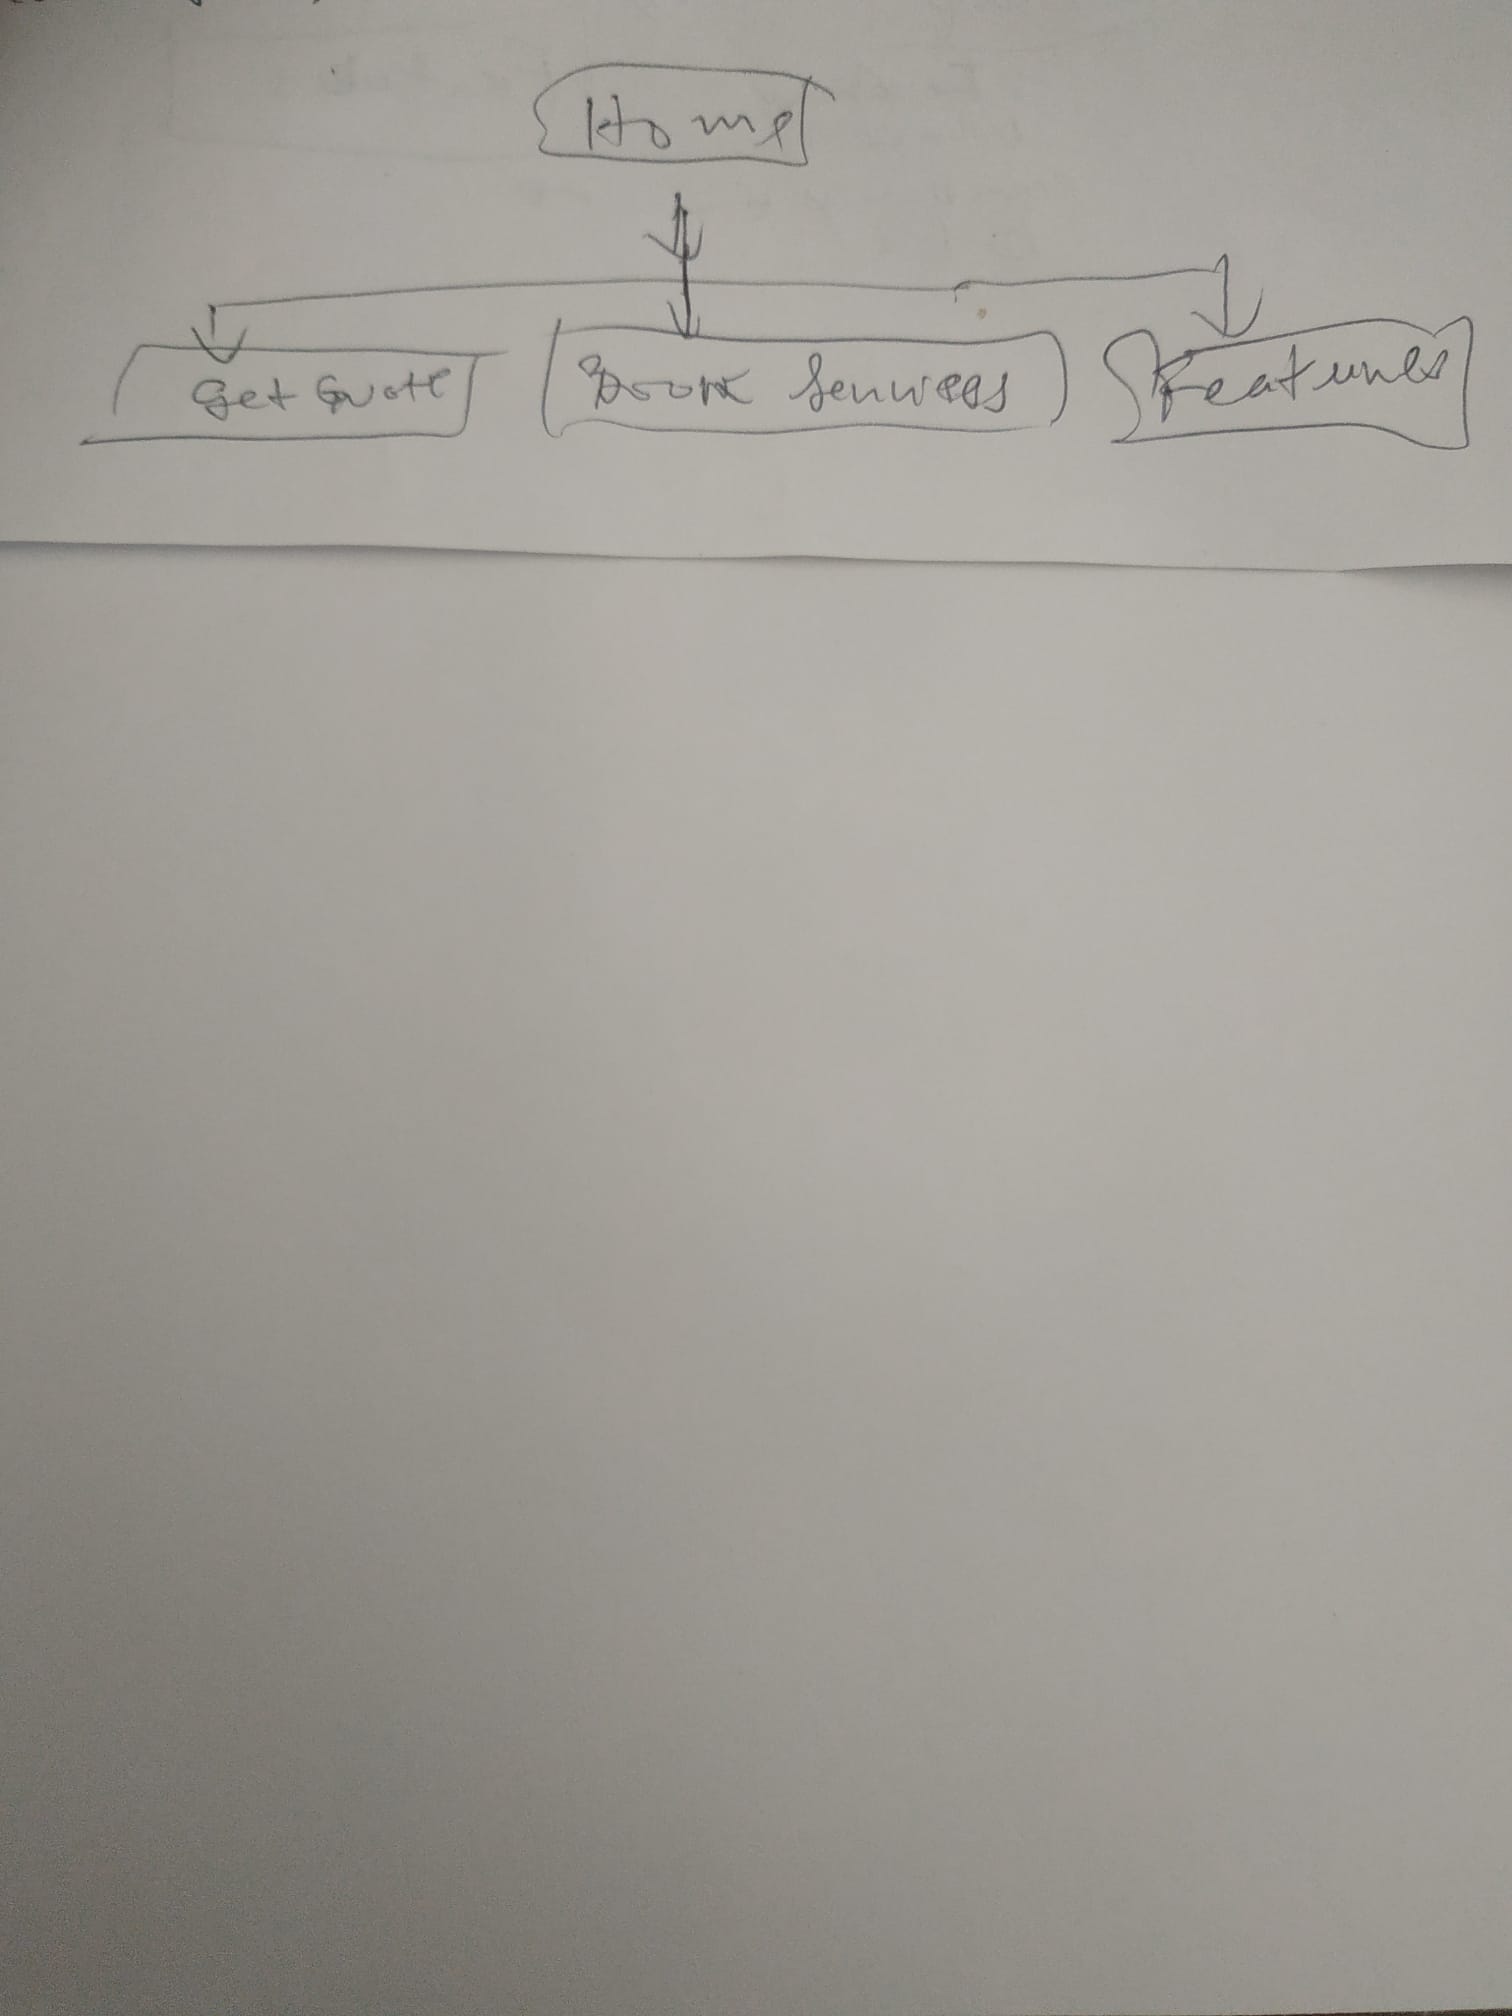 Home
Get Quote Book Services Features